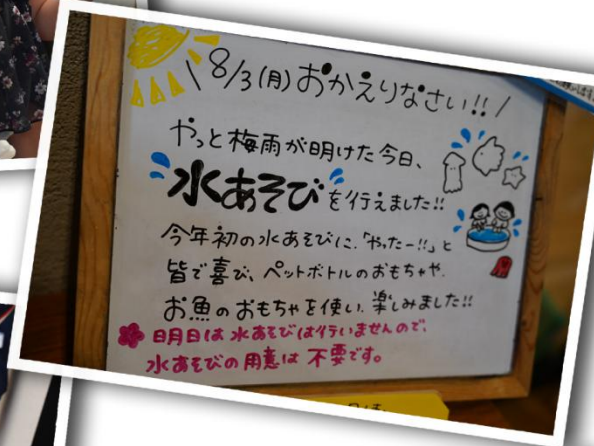 8/3(月)おかえりなさい!!
やっと梅雨が明けた今日、
水あそびを行えました!!
今年初の水あそびに、「やったー!!」と
皆で喜び、ペットボトルのおもちゃや、
お魚のおもちゃを使い、楽しみました!!
明日は水あそびは行いませんので、
水あそびの用意は不要です。